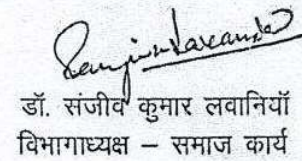 डॉ. संजीव कुमार लवानियॉ
विभागाध्यक्ष – समाज कार्य